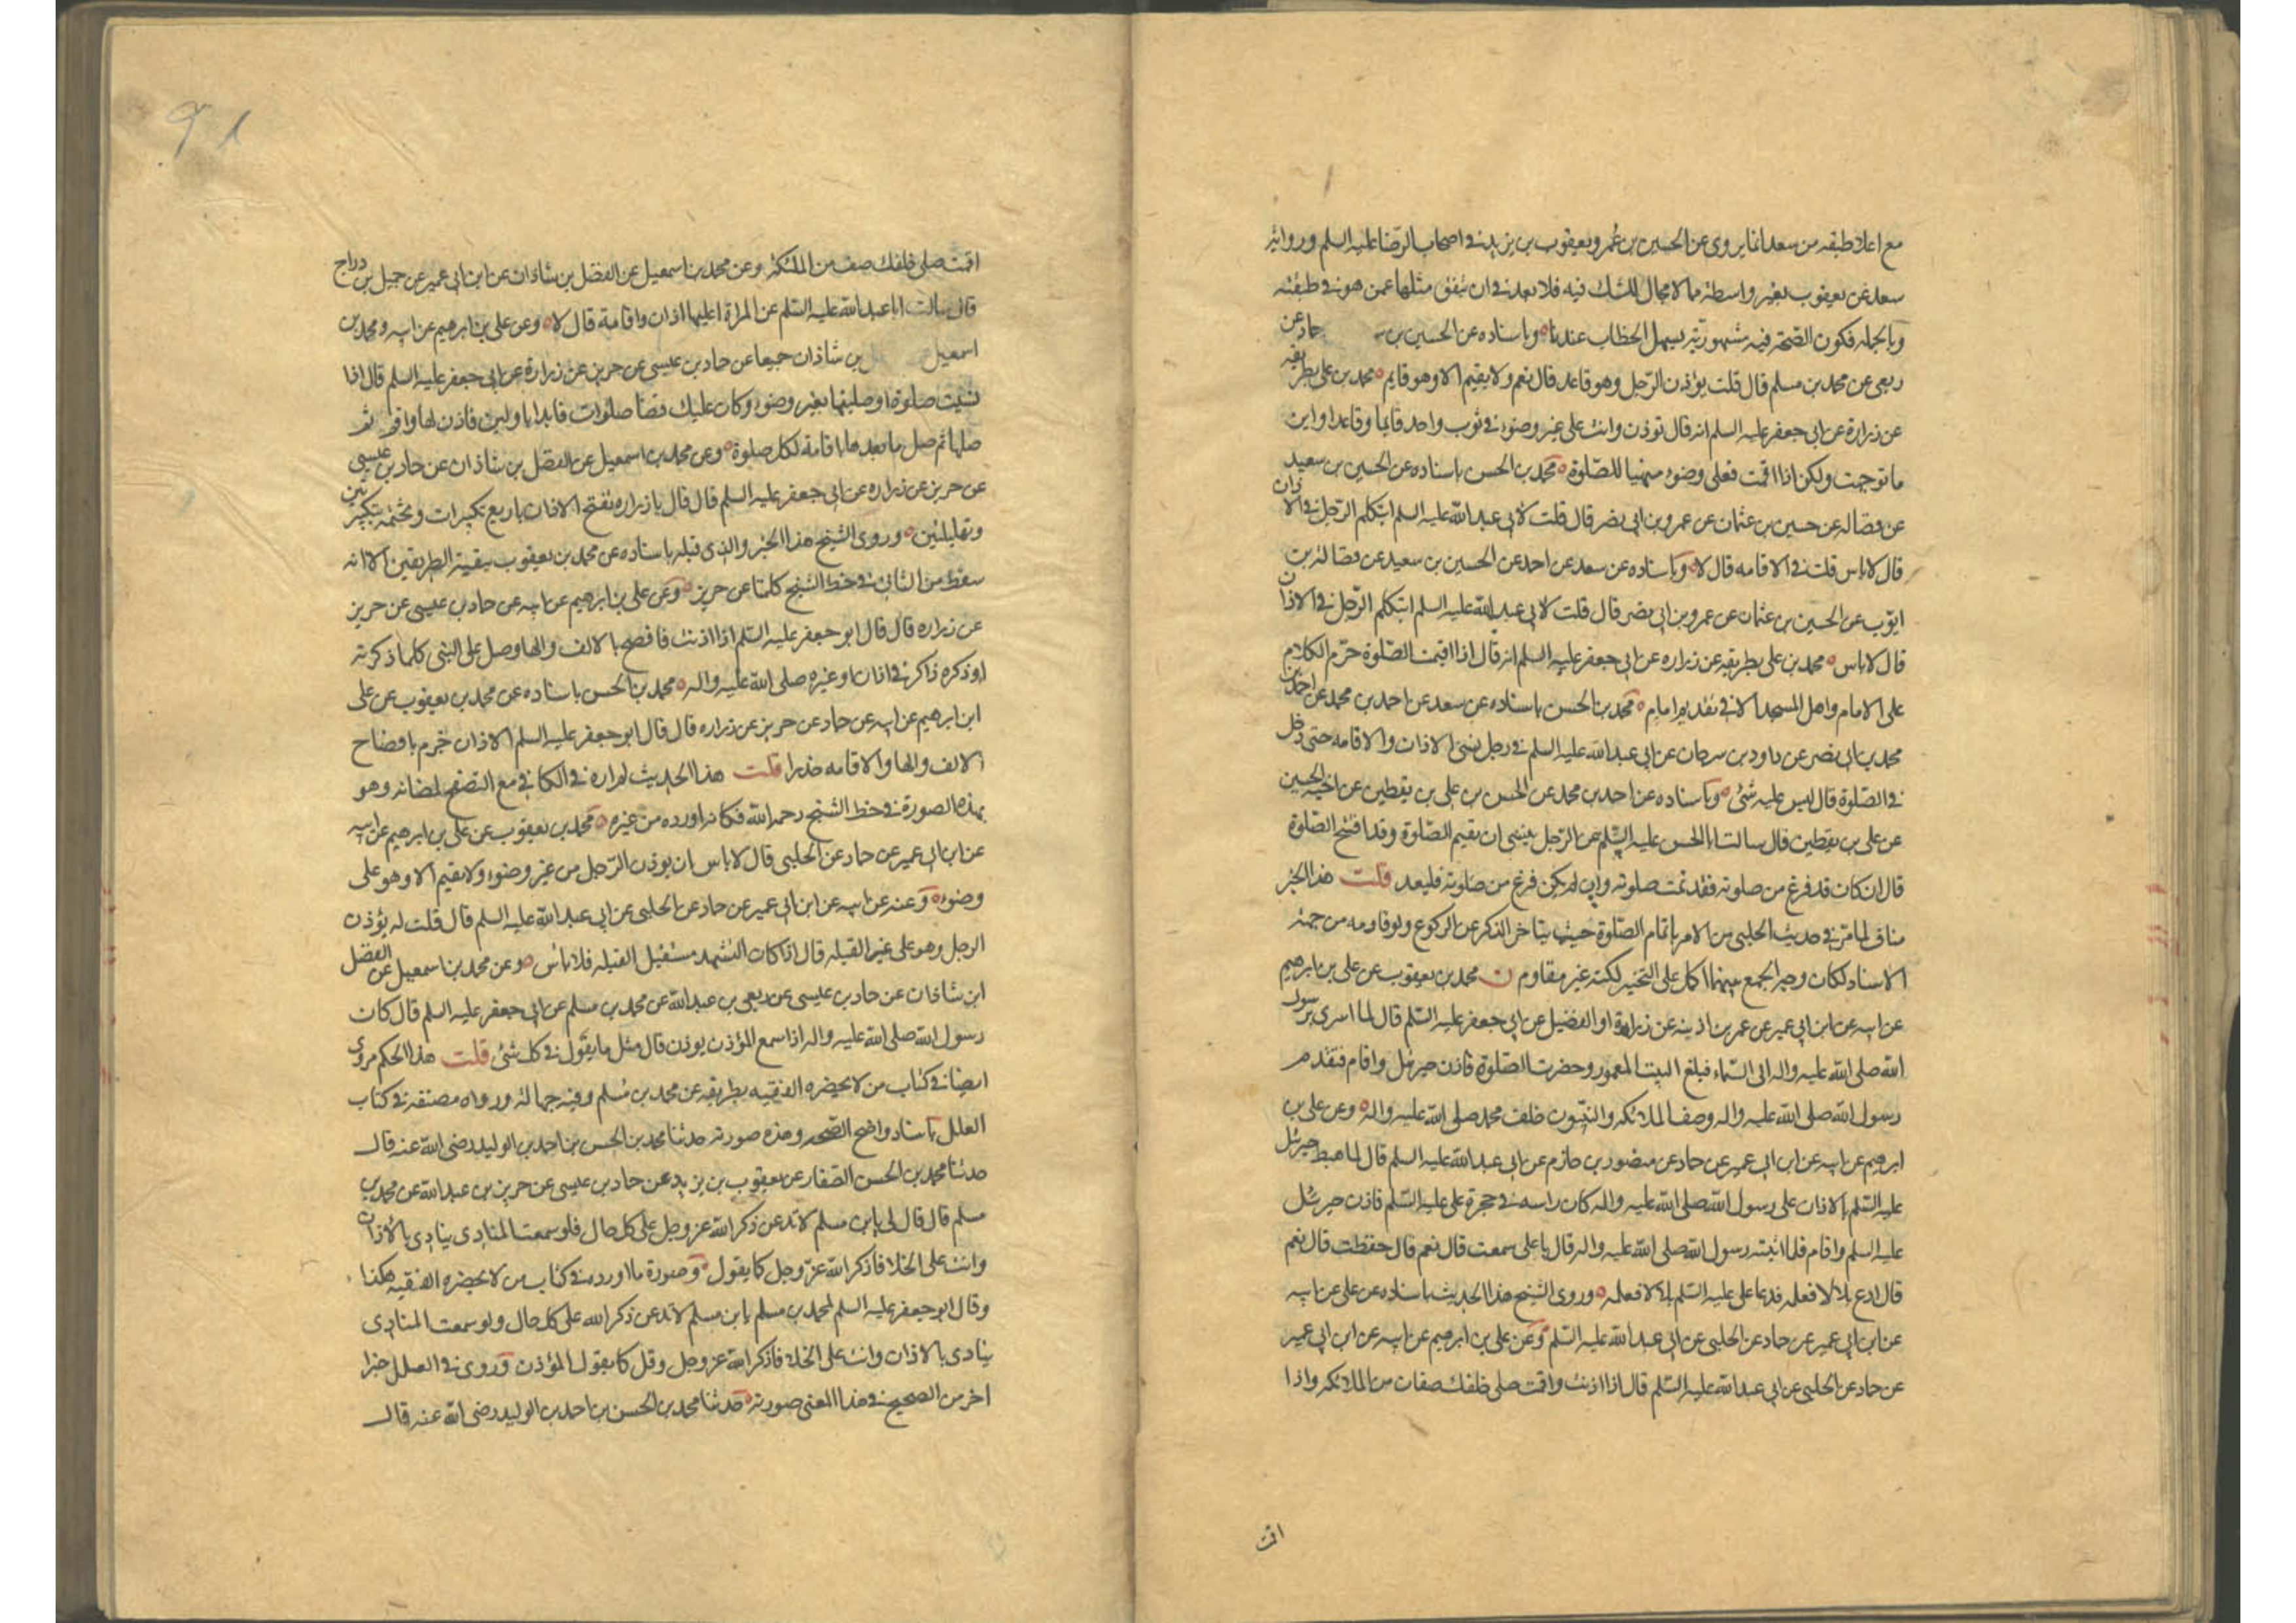 مع اعلا طبقه من سعد انما يروى عن الحسين بن عمر ويعقوب بن يزيد في اصحاب الرضا عليه السلم ورواية
سعد عن يعقوب بغير واسطة مما لا مجال للشك فيه فلا بعد في ان يتفق مثلها عمن هو في طبقته
وبالجملة فكون الصحة فيه مشهوريّة يسهل الخطاب عندنا وباسناده عن الحسين بن حماد عن
ربعى عن محمد بن مسلم قال قلت يؤذن الرّجل وهو قاعد قال نعم ولا يقيم الا وهو قايم محمد بن على بطريقه
عن زرارة عن ابى جعفر عليه السلم انه قال تؤذن وانت على غير وضوء في ثوب واحد قايما وقاعدا واين
ما توجهت ولكن اذا اقمت فعلى وضوء متهيأ للصّلوة محمد بن الحسن باسناده عن الحسين بن سعيد
عن فضاله عن حسين بن عثمان عن عمرو بن ابى نصر قال قلت لابى عبد الله عليه السلم ايتكلم الرّجل في الاذان
قال لاباس قلت في الاقامه قال لا وباسناده عن سعد عن احمد عن الحسين بن سعيد عن فضالة بن
ايوّب عن الحسين بن عثمان عن عمرو بن ابى نصر قال قلت لابى عبد الله عليه السلم ايتكلم الرّجل في الاذان
قال لاباس محمد بن على بطريقه عن زراره عن ابى جعفر عليه السلم انه قال اذا اقيمت الصّلوة حرّم الكلام
على الامام واهل المسجد الا في تقديم امام محمد بن الحسن باسناده عن سعد عن احمد بن محمد عن احمد بن
محمد بن ابى نصر عن داود بن سرحان عن ابى عبد الله عليه السلم في رجل نسى الاذان والاقامه حتى دخل
في الصّلوة قال ليس عليه شئ وباسناده عن احمد بن محمد عن الحسن بن على بن يقطين عن اخيه الحسين
عن على بن يقطين قال سالت ابا الحسن عليه السّلم عن الرّجل ينسى ان يقيم الصّلوة وقد افتتح الصّلوة
قال ان كان قد فرغ من صلوته فقد تمت صلوته وان لم يكن فرغ من صلوته فليعد قلت هذا الخبر
مناف لما مرّ في حديث الحلبى من الامر باتمام الصّلوة حيث يتاخر الذكر عن الركوع ولو قاومه من جهة
الاسناد لكان وجه الجمع بينهما الحمل على التخيير لكنه غير مقاوم ن محمد بن يعقوب عن على بن ابرهيم
عن ابيه عن ابن ابى عمير عن عمر بن اذينه عن زرارة او الفضيل عن ابى جعفر عليه السّلم قال لما اسرى برسول
الله صلى الله عليه واله الى السّماء فبلغ البيت المعمور وحضرت الصّلوة فاذن جبرئيل واقام فتقدم
رسول الله صلى الله عليه واله وصف الملائكه والنبيّون خلف محمد صلى الله عليه واله وعن على بن
ابرهيم عن ابيه عن ابن ابى عمير عن حماد عن منصور بن حازم عن ابى عبد الله عليه السلم قال لما هبط جبرئيل
عليه السّلم بالاذان على رسول الله صلى الله عليه واله كان راسه في حجرة على عليه السّلم فاذن جبرئيل
عليه السلم واقام فلما انتبه رسول الله صلى الله عليه واله قال يا على سمعت قال نعم قال حفظت قال نعم
قال ادع بلالا فعلمه فدعا على عليه السّلم بلالا فعلمه وروى الشيخ هذا الحديث باسناده عن على عن ابيه
عن ابن ابى عمير عن حماد عن الحلبى عن ابى عبد الله عليه السّلم وعن على بن ابرهيم عن ابيه عن ابن ابى عمير
عن حماد عن الحلبى عن ابى عبد الله عليه السّلم قال اذا اذنت واقمت صلى خلفك صفان من الملائكه واذا
اقمت
91
اقمت صلى خلفك صف من الملئكة وعن محمد بن اسمعيل عن الفضل بن شاذان عن ابن ابى عمير عن جميل بن دراج
قال سالت ابا عبد الله عليه السّلم عن المراة اعليها اذان واقامة قال لا وعن على بن ابرهيم عن ابيه ومحمد بن
اسمعيل بن شاذان جميعا عن حماد بن عيسى عن حريز عن زرارة عن ابى جعفر عليه السلم قال اذا
نسيت صلوة او صليتها بغير وضوء وكان عليك قضا صلوات فابدا باولهن فاذن لها واقم ثم
صلها ثم صل ما بعدها باقامة لكل صلوة وعن محمد بن اسمعيل عن الفضل بن شاذان عن حماد بن عيسى
عن حريز عن زراره عن ابى جعفر عليه السلم قال قال يا زراره تفتح الاذان باربع تكبيرات وتختمه بتكبيرتين
وتهليلتين وروى الشيخ هذا الخبر والذى قبله باسناده عن محمد بن يعقوب ببقية الطريقين الا انه
سقط من الثانى في خط الشيخ كلمتا عن حريز وعن على بن ابرهيم عن ابيه عن حماد بن عيسى عن حريز
عن زراره قال قال ابو جعفر عليه السّلم اذا اذنت فافصح بالالف والها وصل على النبى كلما ذكرته
او ذكره ذاكر في اذان او غيره صلى الله عليه واله محمد بن الحسن باسناده عن محمد بن يعقوب عن على
ابن ابرهيم عن ابيه عن حماد عن حريز عن زراره قال قال ابو جعفر عليه السلم الاذان جزم بافصاح
الالف والها والاقامه حدرا قلت هذا الحديث لم اره في الكافي مع التصفح لمضانه وهو
بهذه الصورة في خط الشيخ رحمه الله فكانه اورده من غيره محمد بن يعقوب عن على بن ابرهيم عن ابيه
عن ابن ابى عمير عن حماد عن الحلبى قال لاباس ان يوذن الرّجل من غير وضوء ولا يقيم الا وهو على
وضوء وعنه عن ابيه عن ابن ابى عمير عن حماد عن الحلبى عن ابى عبد الله عليه السلم قال قلت له يؤذن
الرجل وهو على غير القبله قال اذا كان التشهد مستقبل القبله فلا باس وعن محمد بن اسمعيل عن الفضل
ابن شاذان عن حماد بن عيسى عن ربعى بن عبد الله عن محمد بن مسلم عن ابى جعفر عليه السلم قال كان
رسول الله صلى الله عليه واله اذا سمع المؤذن يوذن قال مثل ما يقول في كل شئ قلت هذا الحكم مروى
ايضا في كتاب من لا يحضره الفقيه بطريقه عن محمد بن مسلم وفيه جهالة ورواه مصنفه في كتاب
العلل باسناد واضح الصّحه وهذه صورته حدثنا محمد بن الحسن بن احمد بن الوليد رضى الله عنه قال
حدثنا محمد بن الحسن الصّفار عن يعقوب بن يزيد عن حماد بن عيسى عن حريز بن عبد الله عن محمد بن
مسلم قال قال لى يابن مسلم لا تدعن ذكر الله عز وجل على كل حال فلو سمعت المنادى ينادى بالاذان
وانت على الخلا فاذكر الله عزّ وجل كما يقول وصورة ما اورده في كتاب من لا يحضره الفقيه هكذا
وقال ابو جعفر عليه السلم لمحمد بن مسلم يابن مسلم لا تدعن ذكر الله على كل حال ولو سمعت المنادى
ينادى بالاذان وانت على الخلاء فاذكر الله عز وجل وقل كما يقول المؤذن وروى في العلل خبرا
اخر من الصحيح في هذا المعنى صورته حدثنا محمد بن الحسن بن احمد بن الوليد رضى الله عنه قال